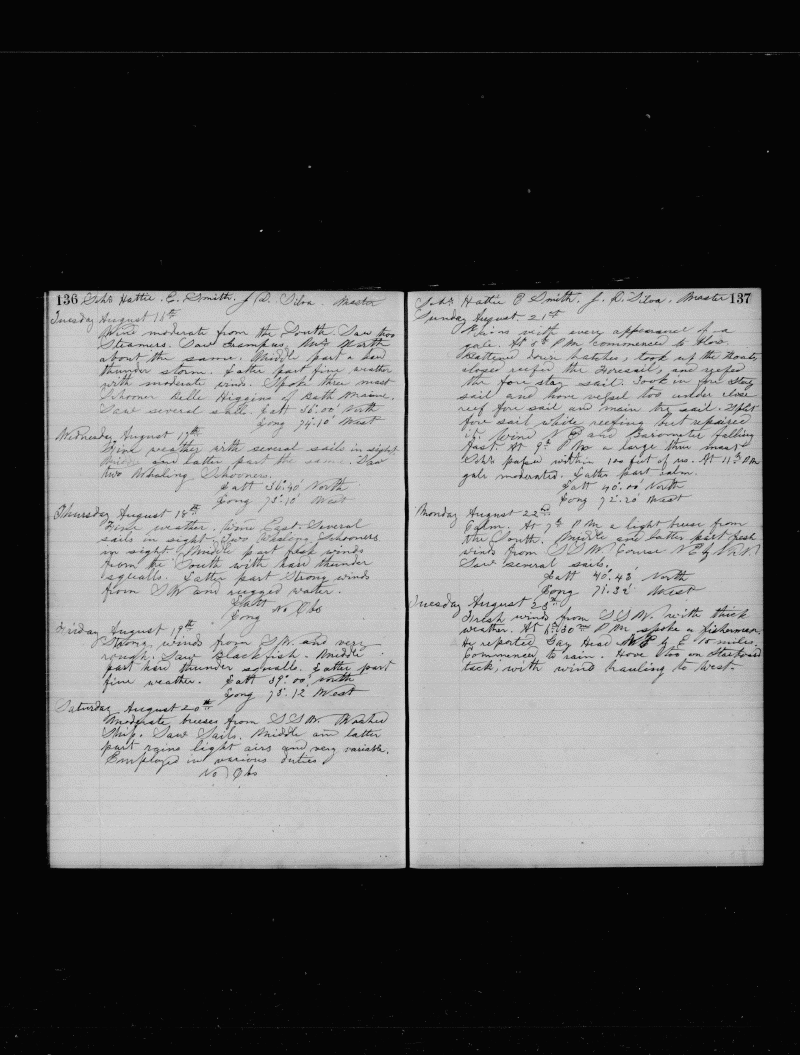 136 Schr Hattie. E. Smith. J. D. Silva. Master
Tuesday August 16th
Wind moderate from the South. Saw two
Steamers. Saw Grampus. Wind North
about the same. Middle part a hard
thunder storm. Latter part fine weather
with moderate wind. Spoke three mast
Schooner Belle Higgins of Bath Maine.
Saw several sails. Latt 36°.00' North
Long 74°.10' West
Wednesday August 17th
Fine weather with several sails in sight
Middle and latter part the same. Saw
two Whaling Schooners.
Latt 36°.40' North
Long 73°.10' West
Thursday August 18th
Fine weather. Wind East. Several
sails in sight. Two Whaling Schooners
in sight. Middle part fresh winds
from the South with hard thunder
squalls. Latter part Strong winds
from SW and rugged water.
Latt
Long No Obs
Friday August 19th
Strong winds from SW and very
rough. Saw Blackfish. Middle
part hard thunder squalls. Latter part
fine weather. Latt 39°.00' North
Long 73°.12 West
Saturday August 20th
Moderate breeses from SSW. Washed
Ship. Saw Sails. Middle and latter
part rains light airs and very variable.
Employed in various duties.
No Obs
Schr Hattie E Smith. J. D. Silva. Master 137
Sunday August 21st
Rains with every appearance of a
gale. At P M commenced to blow.
Battened down hatches, took up the boats,
closed reefed the Foresail, and reefed
the fore stay sail. Took in fore stay
sail and hove vessel too under close
reef fore sail and main try sail. Split
fore sail while reefing but repaired
it. Wind N E and Barometer falling
fast. At 9h P M a large three mast
Schr passed within 100 feet of us. At 11.30 P M
gale moderated. Latter part calm.
Latt 40°.00 North
Long 72°.20' West
Monday August 22nd
Calm. At 7h P M a light breese from
the South. Middle and latter part fresh
winds from S S W. Course N E by N
Saw several sails.
Latt 40°.43' North
Long 71°.32' West
Tuesday August 23rd
Fresh winds from S S W. with thick
weather. At P M spoke a fisherman.
He reported Gay Head N E by E 10 miles.
Commenced to rain. Hove too on Starboard
tack, with wind hauling to West.